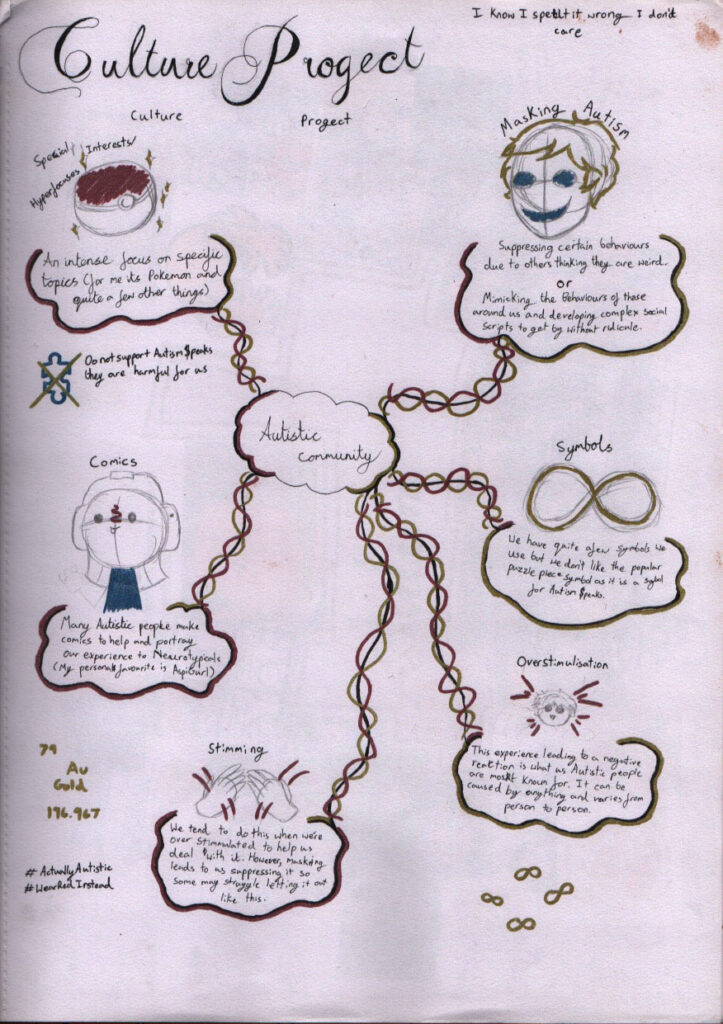 I know I spellt it wrong I don't
care
Culture Progect
Culture Progect
Special Interests/
Hyperfocuses
An intense focus on specific
topics (for me its Pokemon and
quite a few other things)
Masking Autism
Suppressing certain behaviours
due to others thinking they are weird.
or
Mimicking the Behaviours of those
around us and developing complex social
Scripts to get by without ridicule.
Do not support Autism $peaks
they are harmful for us
Autistic
community
Comics
Many Autistic people make
comics to help and portray
our experience to Neurotypicals
(My personal favourite is AspiGurl)
Symbols
We have quite a few symbols we
use but we don't like the popular
puzzle piece symbol as it is a
for Autism $peaks.
Overstimulisation
This experience leading to a negative
reaction is what us Autistic people
are most known for. It can be
caused by anything and varies from
person to person.
Stimming
We tend to do this when we're
over Stimmulated to help us
deal with it. However, masking
leads to us suppressing it so
some may struggle letting it out
like this.
79
Au
Gold
196.967
#ActuallyAutistic
#WearRedInstead